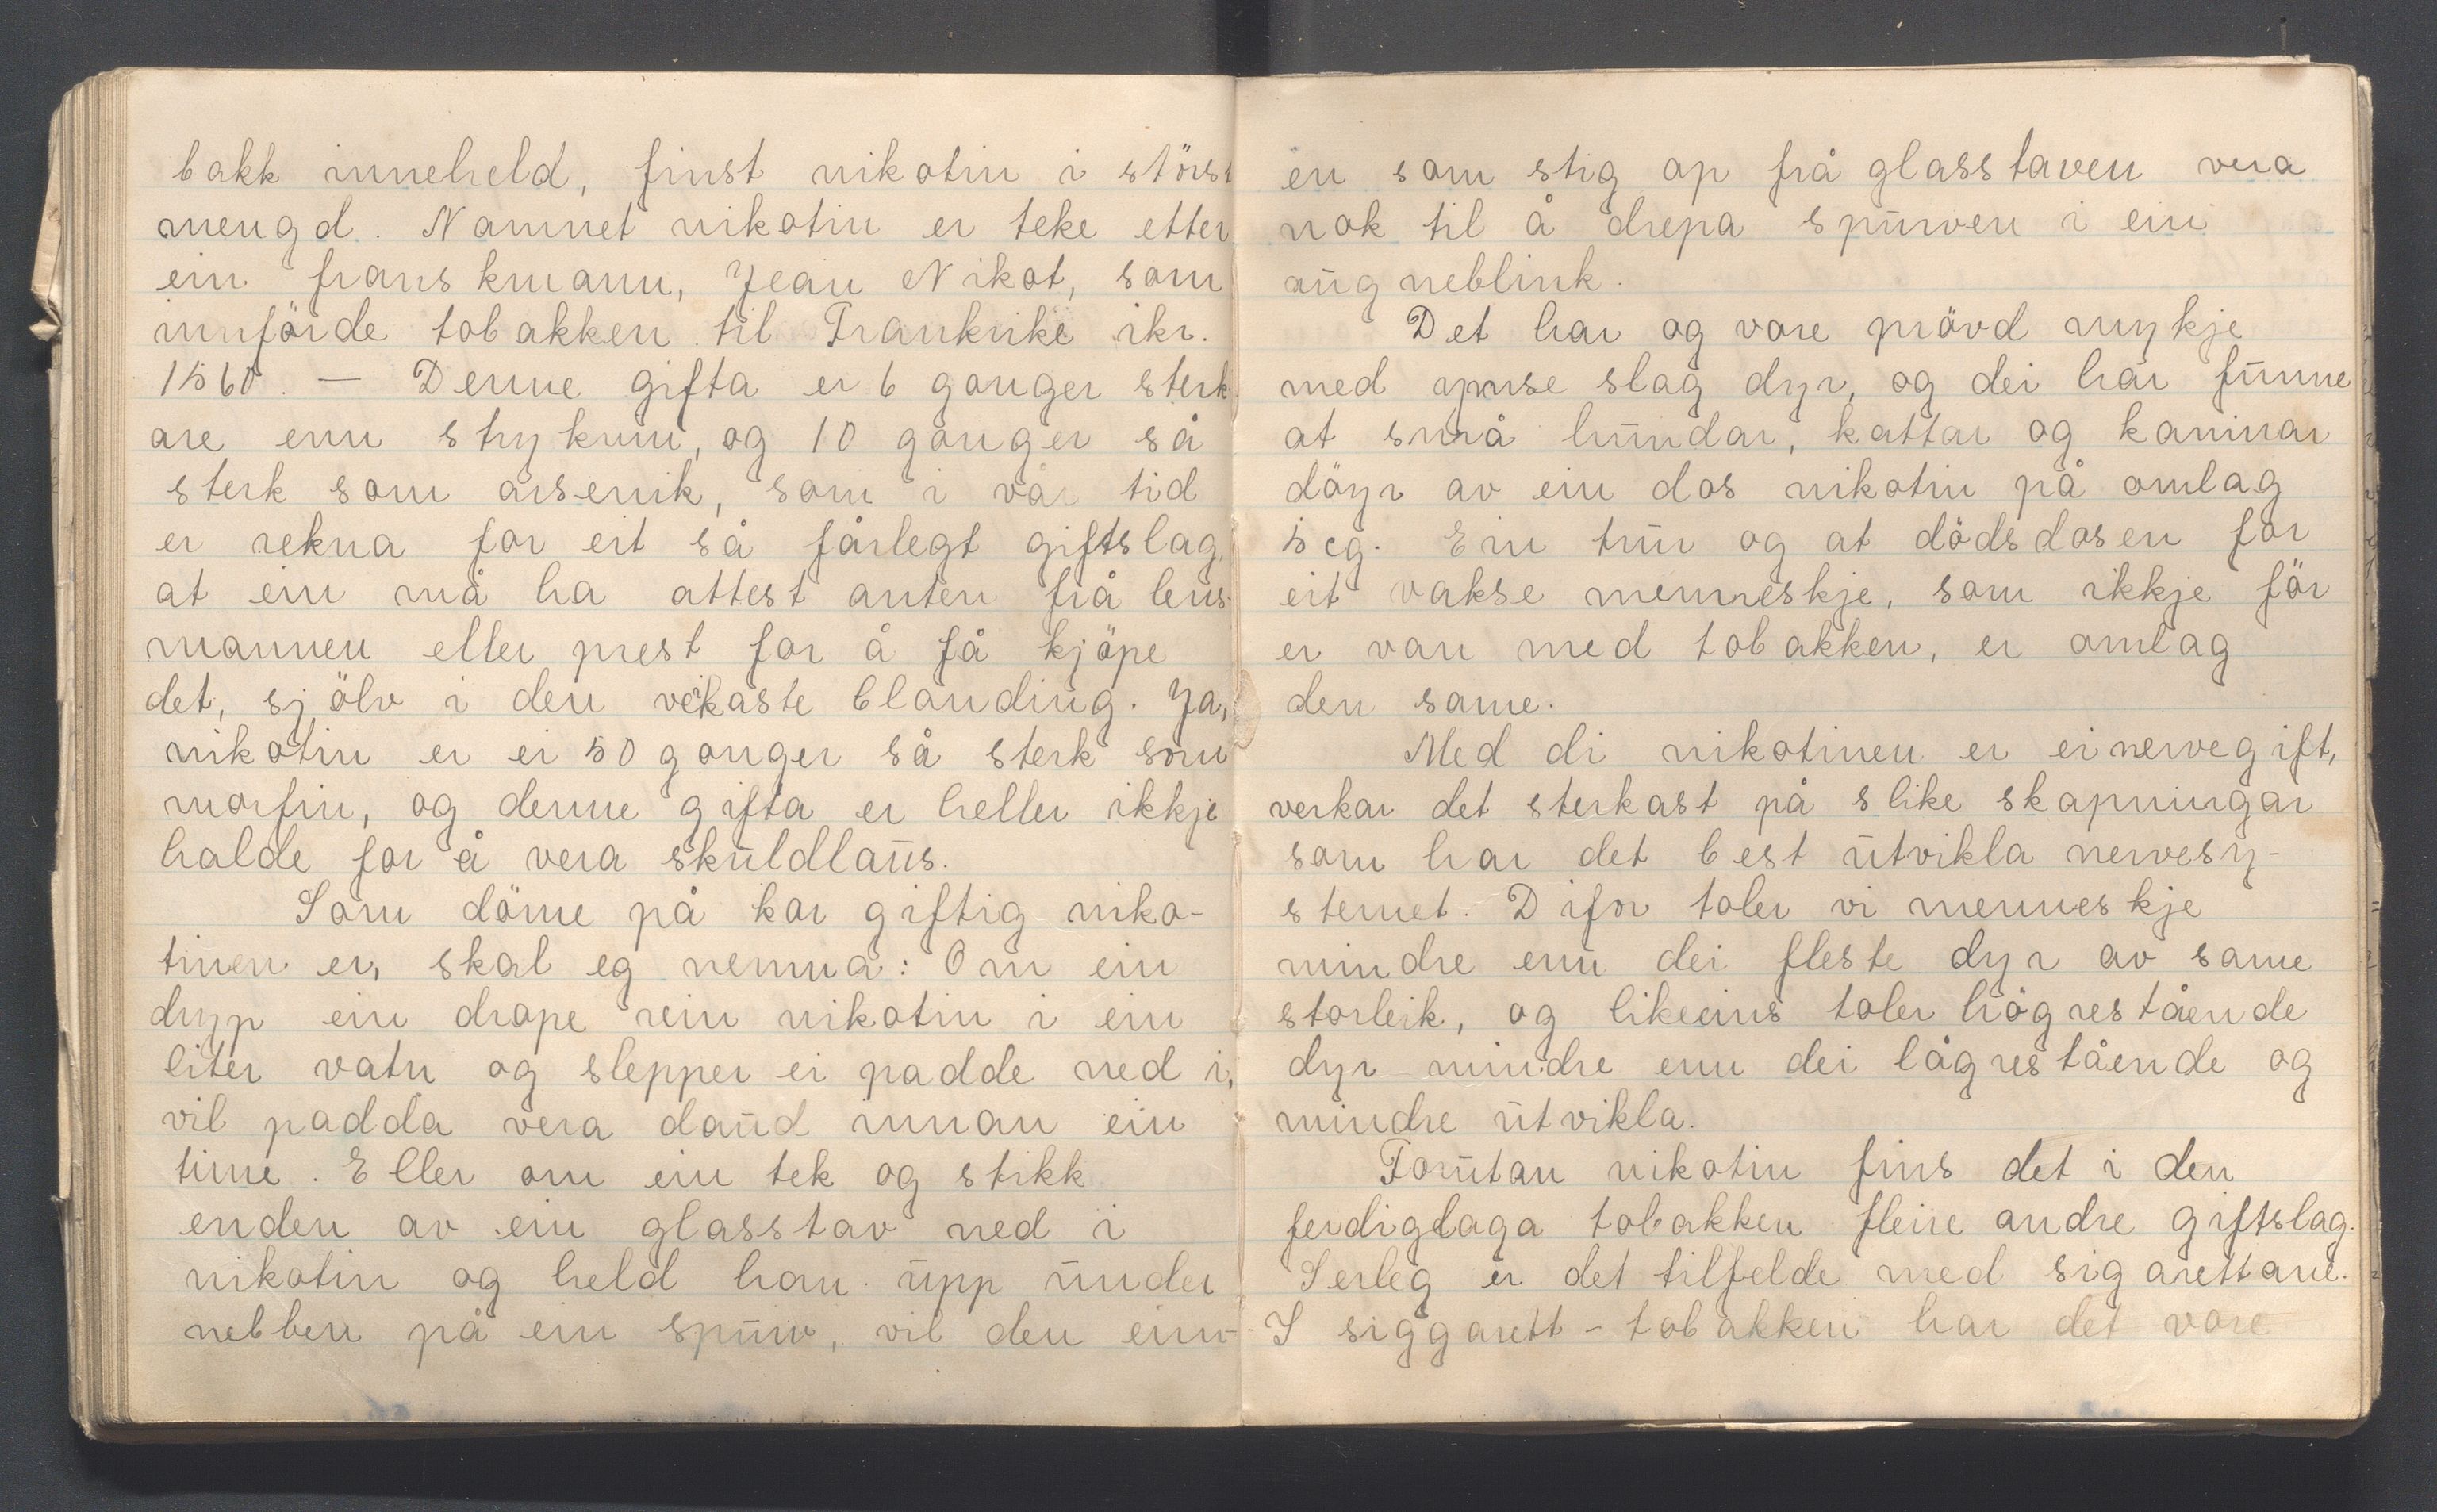 bakk inneheld, finst nikotin i störst
mengd. Namnet nikotin er teke etter
ein franskmann, Jean Nikot, som
innförde tobakken til Frankrike ikr.
1560. — Denne gifta er 6 gonger sterk
are enn stryknin, og 10 gonger så
sterk som arsenik, som i vår tid
er rekna for eit så fårlegt giftslag,
at ein må ha attest anten frå lens-
mannen eller prest for å få kjöpe
det, sjölv i den veikaste blanding. Ja,
nikotin er ei 50 gonger så sterk som
morfin, og denne gifta er heller ikkje
halde for å vera skuldlaus.
Som döme på kor giftig niko-
tinen er, skal eg nemna: Om ein
dryp ein drope rein nikotin i ein
liter vatn og slepper ei padde ned i,
vil padda vera daud innan ein
time. Eller om ein tek og stikk
enden av ein glasstav ned i
nikotin og held han upp under
nebben på ein spurv, vil den eim-
en som stig op frå glasstaven vera
nok til å drepa spurven i ein
augneblink.
Det har og vore prövd mykje
med ymse slag dyr, og dei har funne
at små hundar, kattar og kaninar
döyr av ein dos nikotin på omlag
5 cg. Ein trur og at dödsdosen for
eit vakse menneskje, som ikkje för
er van med tobakken, er omlag
den same.
Med di nikotinen er ei nervegift,
verkar det sterkast på slike skapningar
som har det best utvikla nervesy-
stemet. Difor toler vi menneskje
mindre enn dei fleste dyr av same
storleik, og likeeins toler högrestående
dyr mindre enn dei lågrestående og
mindre utvikla.
Forutan nikotin fins det i den
ferdiglaga tobakken fleire andre giftslag.
Serleg er det tilfelde med sigarettane.
I siggarett-tobakken har det vore